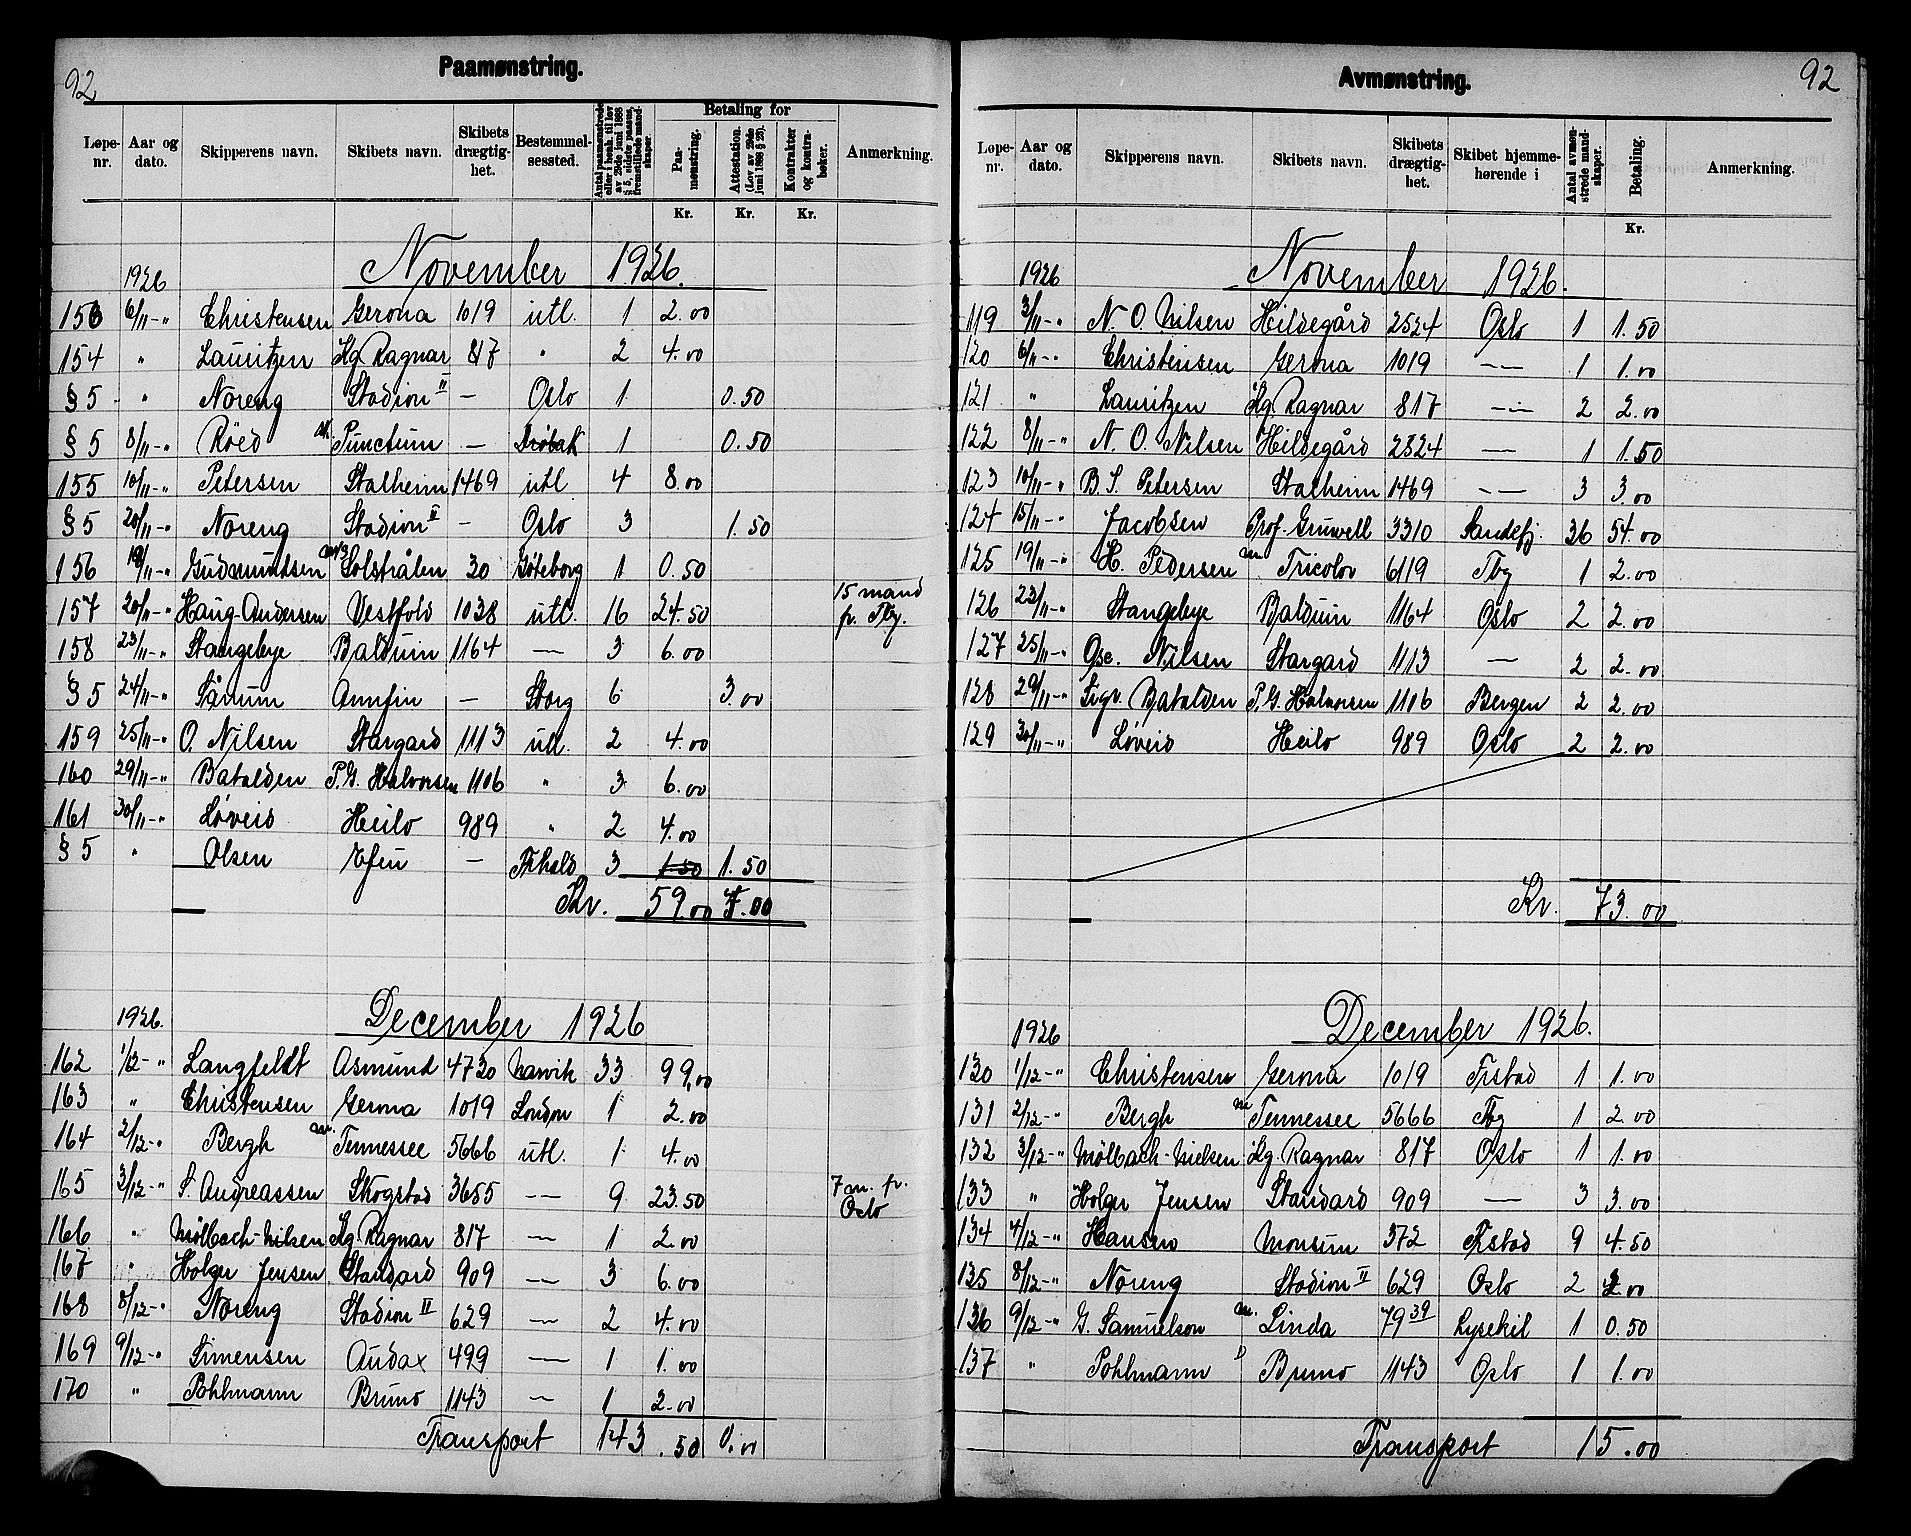 92
Paamønstring.
Løpe-nr. Aar og dato. Skipperens navn. Skibets navn. Skibets drægtig-het. Bestemmel-sessted. Antal paamønstrede eller i henh. til lov av 29de juni 1888 § 5, sidste passus, fremstillede mand-skaper. Betaling for Paa-mønstring. Attestation. (Lov av 29de juni 1888 § 25). Kontrakter og kontra-bøker. Anmerkning.
Kr. Kr. Kr.
1926 November 1926.
153 6/11-" Christensen Gerona 1019 utl. 1 2.00
154 " Lauritzen Kg. Ragnar 817 " 2 4.00
§ 5 " Noreng Stadion II — Oslo 1 0.50
§ 5 8/11-" Røed Punctum — Drøbak 1 0.50
155 10/11-" Petersen Stalheim 1469 utl 4 8.00
§ 5 20/11-" Noreng Stadion II — Oslo 3 1.50
156 19/11-" Gudmundsen Solstrålen 30 Gøteborg 1 0.50
157 20/11-" Haug-Andersen Vestfold 1038 utl. 16 24.50 15 mand fr. Tbg.
158 23/11-" Stangebye Balduin 1164 — 3 6.00
§ 5 24/11-" Sørum Annfin — Sborg 6 3.00
159 25/11-" O. Nilsen Stargard 1113 utl. 2 4.00
160 29/11-" Batalden P.G. Halvorsen 1106 " 3 6.00
161 30/11-" Løveid Heilo 989 " 2 4.00
§ 5 " Olsen Efeu — Frhald 3 1.50 1.50
Kr. 59.00 7.00
1926. December 1926
162 1/12-" Langfeldt Asmund 4730 Narvik 33 99.00
163 " Christensen Gerona 1019 London 1 2.00
164 2/12-" Bergh Tennessee 5666 utl. 1 4.00
165 3/12-" S. Andreassen Skogstad 3655 — 9 23.50 7 m. fr. Oslo
166 " Mølbach-Nilsen Kg. Ragnar 817 — 1 2.00
167 " Holger Jensen Standard 909 — 3 6.00
168 8/12-" Noreng Stadion II 629 — 2 4.00
169 9/12-" Simensen Audax 499 — 1 1.00
170 " Pohlmann Bruno 1143 — 1 2.00
Transport 143.50 0.00
92
Avmønstring.
Løpe-nr. Aar og dato. Skipperens navn. Skibets navn. Skibets drægtig-het. Skibet hjemme-hørende i Antal avmøn-strede mand-skaper. Betaling. Anmerkning.
Kr.
1926 November 1926.
119 3/11-" N. O. Nilsen Hildegård 2524 Oslo 1 1.50
120 6/11-" Christensen Gerona 1019 — 1 1.00
121 " Lauritzen Kg. Ragnar 817 — 2 2.00
122 8/11-" N. O. Nilsen Hildegård 2324 — 1 1.50
123 10/11-" B. S. Petersen Stalheim 1469 — 3 3.00
124 15/11-" Jacobsen Prof. Gruvell 3310 Sandefj. 36 54.00
125 19/11-" H. Pedersen Tricolor 6119 Tbg 1 2.00
126 23/11-" Stangebye Balduin 1164 Oslo 2 2.00
127 25/11-" Osc. Nilsen Stargard 1113 — 2 2.00
128 29/11-" Sigv. Batalden P.G. Halvorsen 1106 Bergen 2 2.00
129 30/11-" Løveid Heilo 989 Oslo 2 2.00
Kr. 73.00
1926 December 1926.
130 1/12-" Christensen Gerona 1019 Frstad 1 1.00
131 2/12-" Bergh Tennessee 5666 Tbg 1 2.00
132 3/12-" Mølbach-Nielsen Kg. Ragnar 817 Oslo 1 1.00
133 " Holger Jensen Standard 909 — 3 3.00
134 4/12-" Hansen Monsun 372 Frstad 9 4.50
135 8/12-" Noreng Stadion II 629 Oslo 2 2.00
136 9/12-" G. Samuelson Linda 79 39 Lysekil 1 0.50
137 " Pohlmann Bruno 1143 Oslo 1 1.00
Transport 15.00